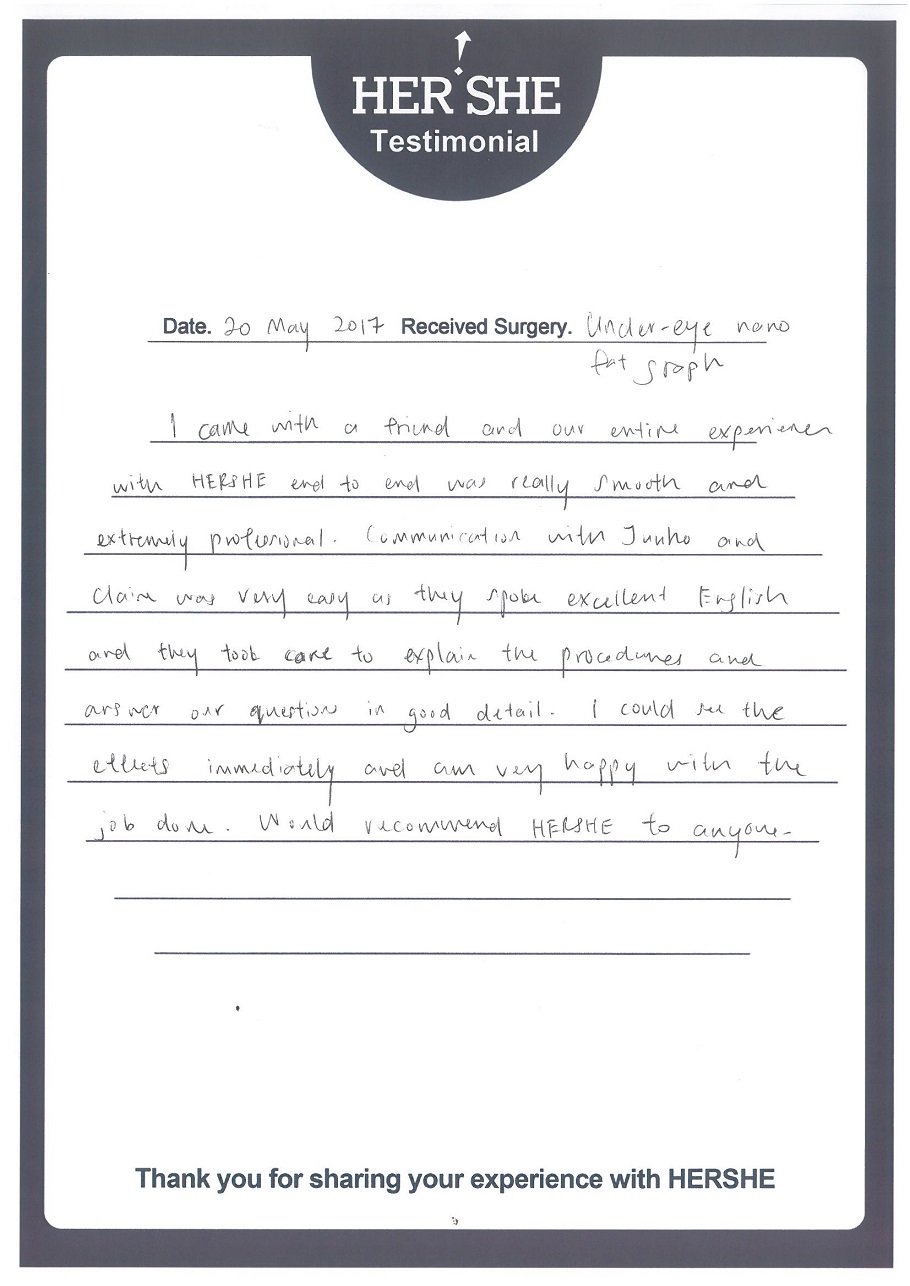 HER SHE
Testimonial
Date. 20 May 2017 Received Surgery. Under-eye nano
fat graph
I came with a friend and our entire experience
with HERSHE end to end was really smooth and
extremely professional. Communication with Junho and
Claire was very easy as they spoke excellent English
and they took care to explain the procedures and
answer our question in good detail. I could see the
effects immediately and am very happy with the
job done. Would recommend HERSHE to anyone.
Thank you for sharing your experience with HERSHE